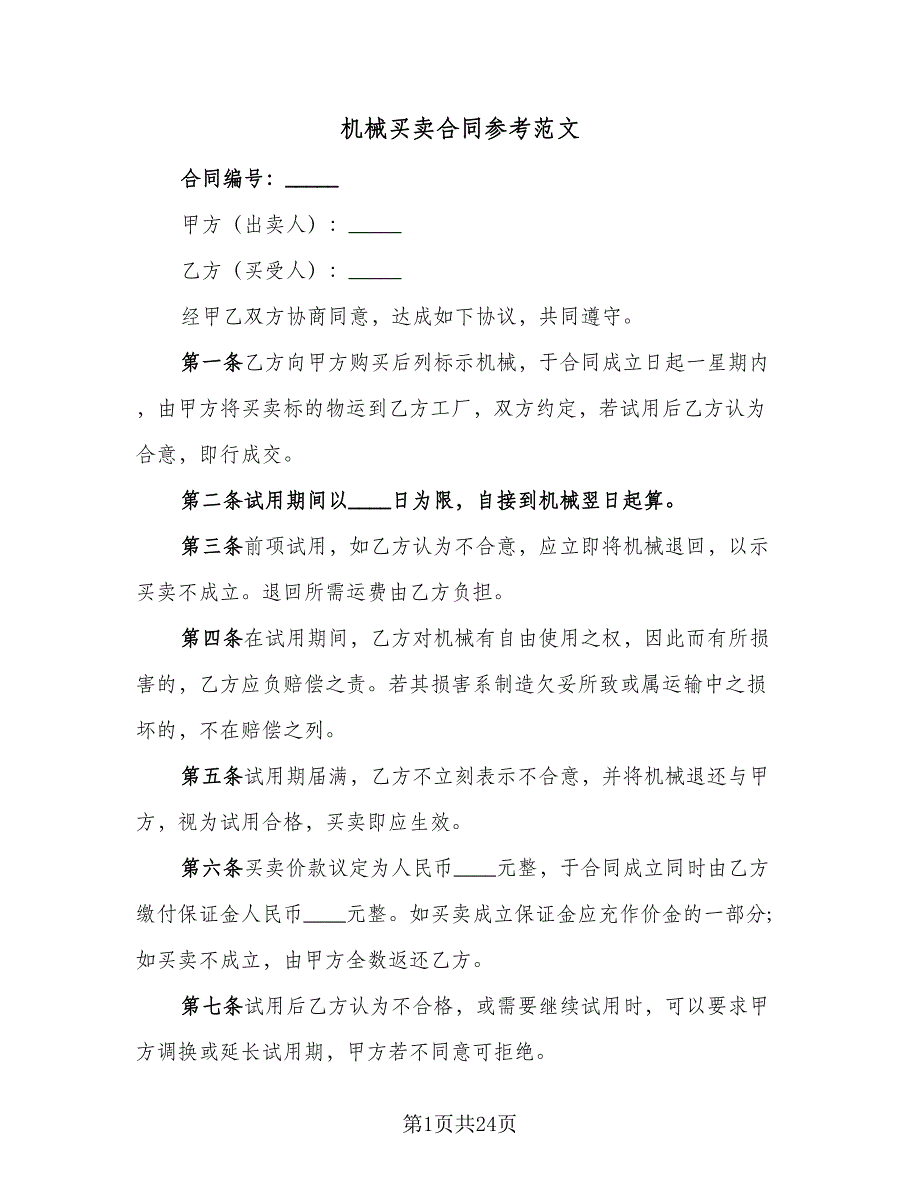 机械买卖合同参考范文
合同编号：_____
甲方（出卖人）：_____
乙方（买受人）：_____
经甲乙双方协商同意，达成如下协议，共同遵守。
第一条乙方向甲方购买后列标示机械，于合同成立日起一星期内
，由甲方将买卖标的物运到乙方工厂，双方约定，若试用后乙方认为
合意，即行成交。
第二条试用期间以____日为限，自接到机械翌日起算。
第三条前项试用，如乙方认为不合意，应立即将机械退回，以示
买卖不成立。退回所需运费由乙方负担。
第四条在试用期间，乙方对机械有自由使用之权，因此而有所损
害的，乙方应负赔偿之责。若其损害系制造欠妥所致或属运输中之损
坏的，不在赔偿之列。
第五条试用期届满，乙方不立刻表示不合意，并将机械退还与甲
方，视为试用合格，买卖即应生效。
第六条买卖价款议定为人民币____元整，于合同成立同时由乙方
缴付保证金人民币____元整。如买卖成立保证金应充作价金的一部分；
如买卖不成立，由甲方全数返还乙方。
第七条试用后乙方认为不合格，或需要继续试用时，可以要求甲
方调换或延长试用期，甲方若不同意可拒绝。
第1页共24页